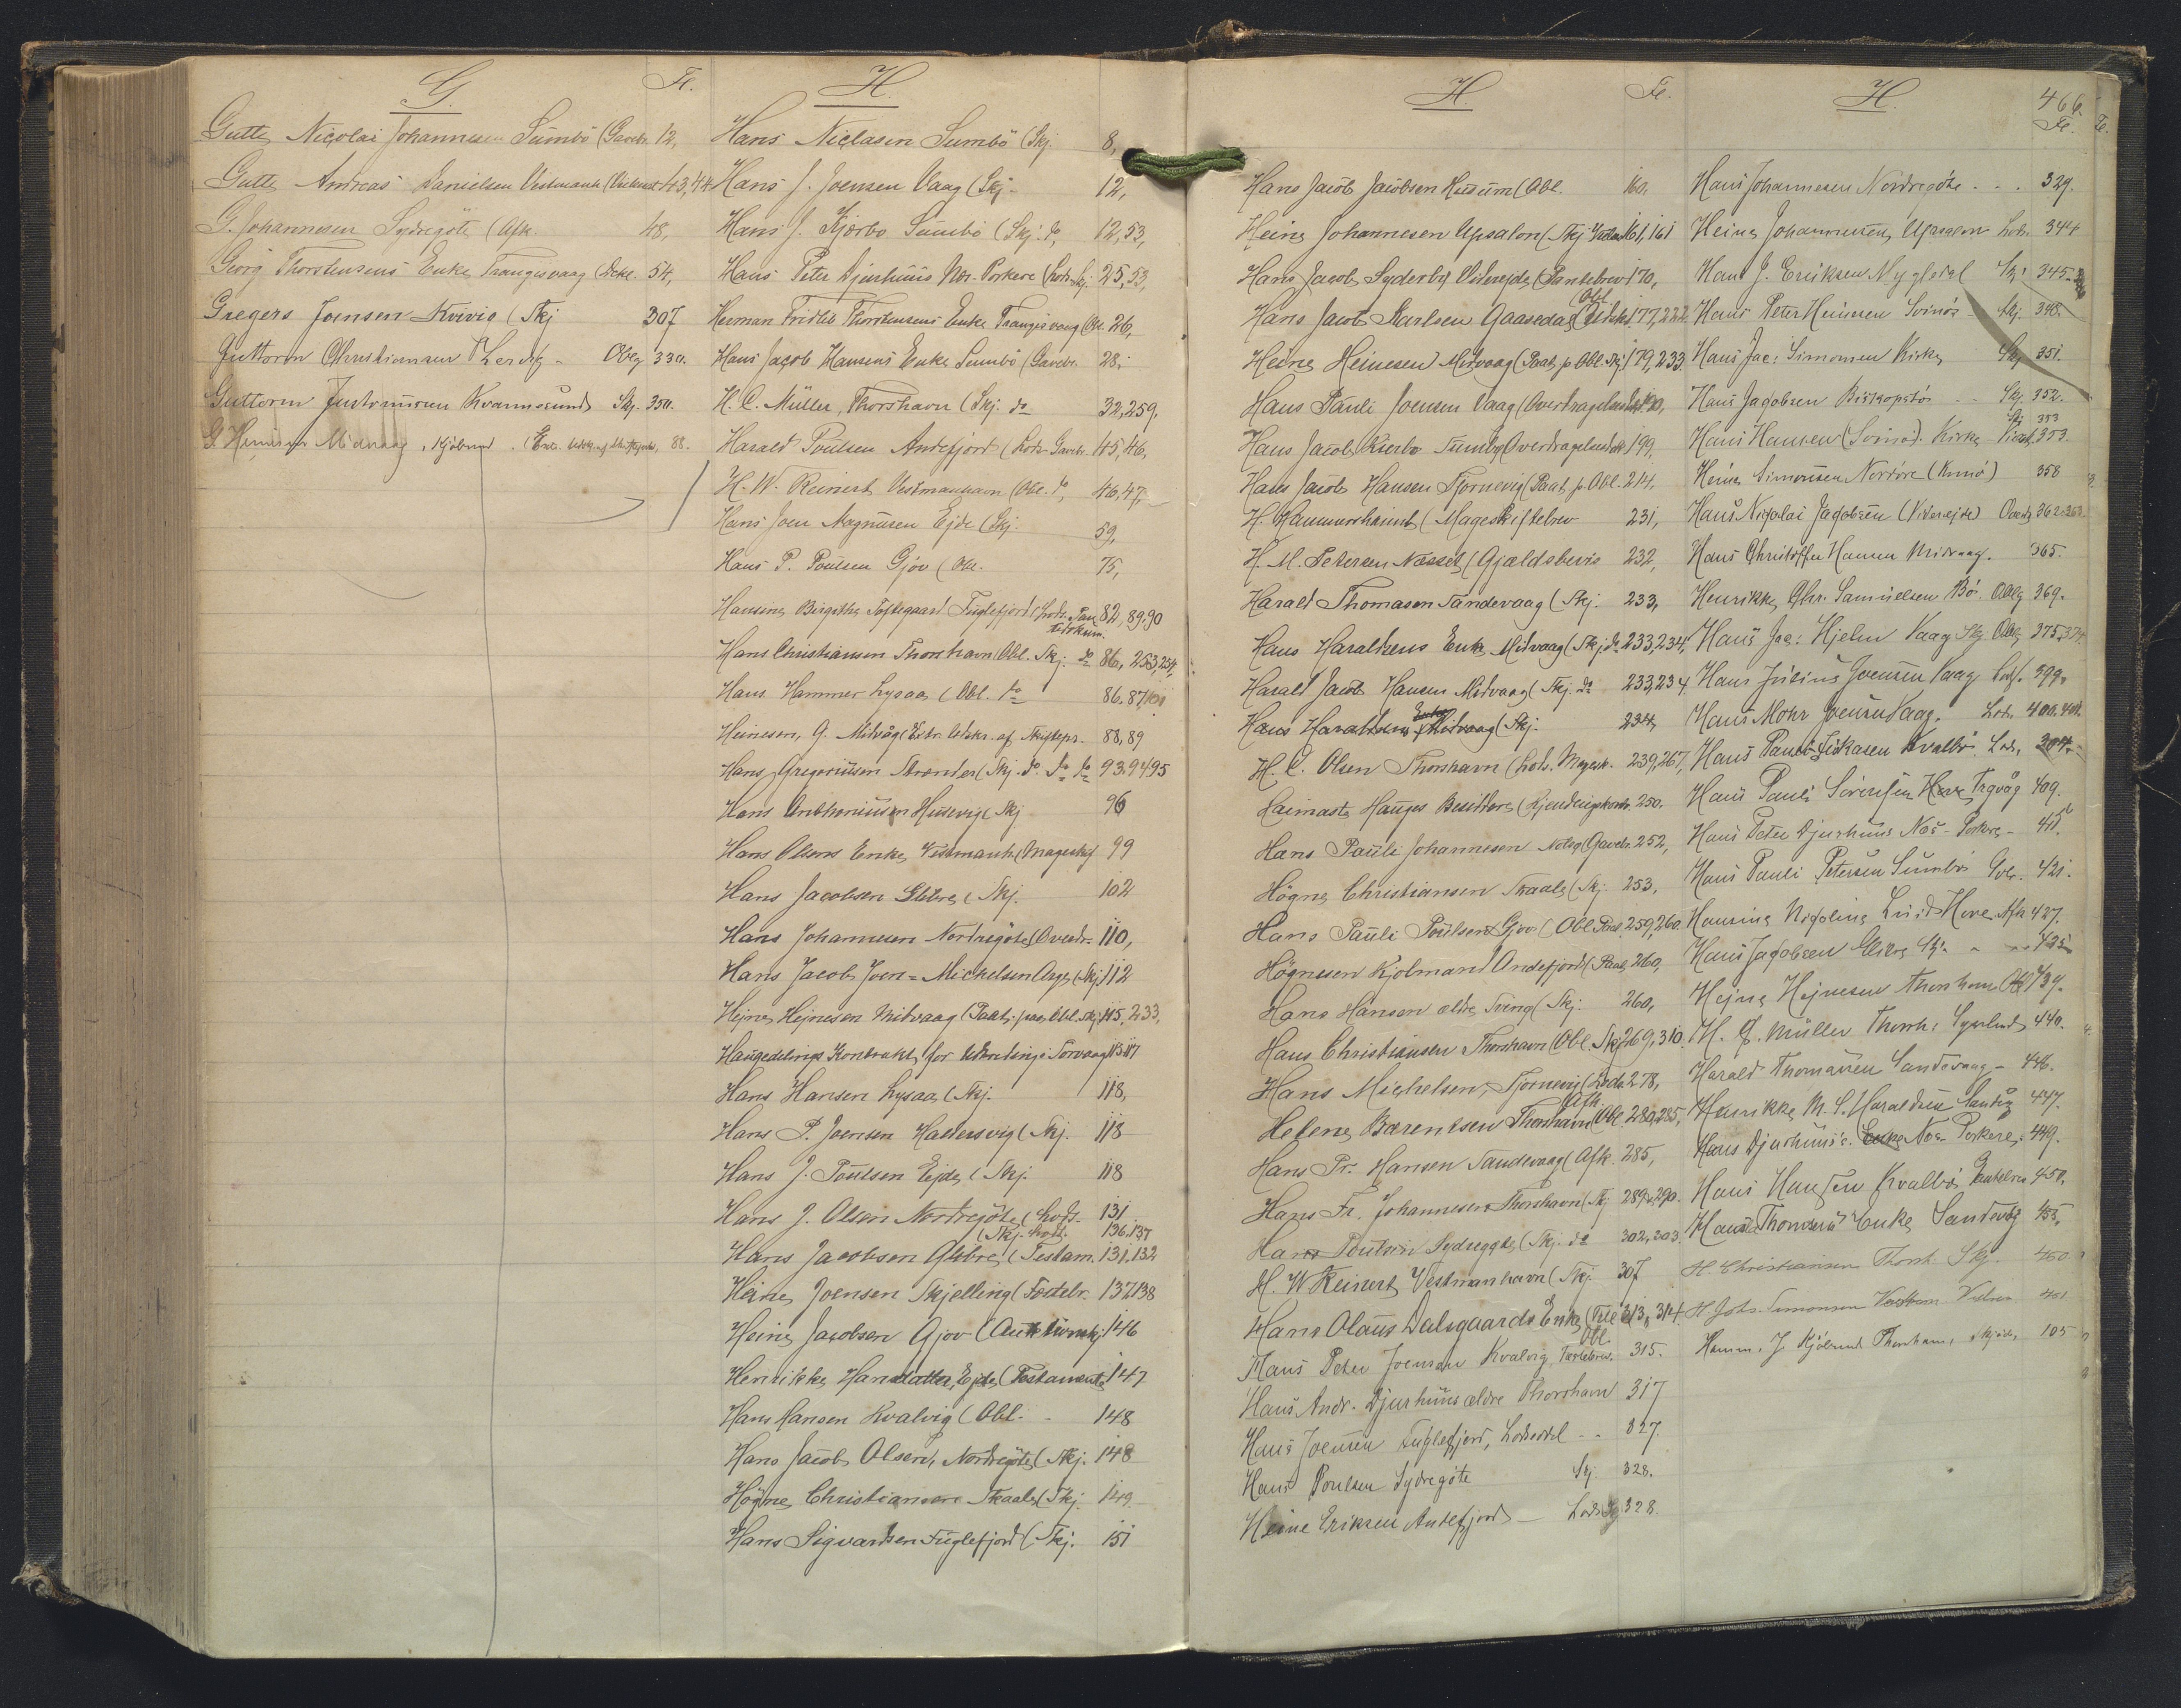 G. Fl.
Gutte Nicolai Johannesen Sumbö (Gavebr. 12,
Gutte Andreas Danielsen Vestmanh 43,44
G. Johannesen Sydregöte (Afk. 48,
Georg Thorstensens Enke Trangisvaag (Dekl. 54,
Gregers Joensen Kvivig (Skj 307
Guttorm Christiansen Lervig - Oblg 330.
Guttorm Kvannesund Skj. 350.
G. Heinesen Midvaag, Kjöbmd. 88.
H.
Hans Niclasen Sumbö (Skj. 8,
Hans J. Joensen Vaag (Skj. 12,
Hans J. Kjærbo Sumbö (Skj. do, 12,53,
Hans Peter Djurhuus Nor. Porkere (Lods. Skj. 25,53,
Herman Fridlib Thorstensens Enke Trangisvaag (Obl. 26,
Hans Jacob Hansens Enke Sumbö (Gavebr. 28,
H. C. Müller, Thorshavn (Skj. do 32,259,
Harald Poulsen Andefjord (Lods. Gavebr. 45,46,
H. W. Reinert Vestmanhavn (Obl. do, 46,47,
Hans Joen Magnusen Ejde (Skj. 59,
Hans P. Poulsen Gjov (Obl. 75,
Hansine Birgithe Toftegaard Fuglefjord (Lods. 82,89,90
Hans Christiansen Thorshavn (Obl. Skj. do 86,253,254,
Hans Hammer Lysaa (Obl. do 86,87,101
Heinesen, G. Midvåg (Extr. Udskr. af Skiftepr. 88,89
Hans Gregoriusen Strender (Skj. do. do do 93,94,95
Hans Anthoniusen Husevig (Skj 96
Hans Olsens Enke, Vestmanh. (Mageskif 99
Hans Jacobsen Glibre (Skj. 102
Hans Johannesen Nordregöte (Overdr. 110,
Hans Jacob Joen-Michelsen Arge (Skj 112
Hejne Hejnesen Midvaag (Paat. paa Obl. Skj 115,233,
Haugedelings Kontrakt for Udenbinge Sorvaag 115,117
Hans Hansen Lysaa (Skj. 118,
Hans P. Joensen Haldersvig (Skj. 118
Hans J. Poulsen Ejde (Skj. 118
Hans J. Olsen Nordregöte (Lods. 131
(Skj. Lods. 136,137
Hans Jacobsen Glibre (Testam. 131,132
Heine Joensen Skjelling (Fæstebr. 137,138
Heine Jacobsen Gjov (Auktionskj. 146
Henrikke Hansdatter, Ejde (Testamente 147
Hans Hansen Kvalvig (Obl. - 148
Hans Jacob Olsen, Nordregöte (Skj. 148
Högne Christiansen Skaale (Skj. 149
Hans Sigvardsen Fuglefjord (Skj. 151
H. Fl.
Hans Jacob Jacobsen Husum (Obl. 160,
Heine Johannesen Upsalon (Skj. 161,161
Hans Jacob Syderbö Viderejde (Pantebrev 170,
Obl.
Hans Jacob Karlsen Gaasedal 177,222.
Heine Heinesen Midvaag (Paat. p. Obl. Skj 179,233.
Hans Pauli Joensen Vaag 190,
Hans Jacob Kierbo Sumbö 199,
Hans Jacob Hansen Tjornevig (Paat. p. Obl. 214.
H. Hammershaimb (Mageskiftebrev 231,
H. M. Petersen Næsset (Gjældsbevis 232,
Harald Thomasen Sandevaag (Skj. 233,
Hans Haraldsens Enke Midvaag (Skj. do 233,234,
Harald Jacob Hansen Midvaag (Skj. do 233,234
Hans Haraldsens Enke Midvaag (Skj. 234,
H. C. Olsen Thorshavn (Lods. Magesk. 239,267,
Heimaste Hauges Besiddere 250,
Hans Pauli Johannesen Nolsö (Gavebr. 252,
Högne Christiansen Skaale (Skj. 253,
Hans Pauli Poulsen Gjov (Obl. Paat. 259,260.
Högnesen Kjolmand Andefjord (Paat. 260,
Hans Hansen ældre Sving (Skj. 260,
Hans Christiansen Thorshavn (Obl. Skj 269,310.
Hans Michelsen, Tjornevig (Lods. 278,
Afk.
Helene Barentsen Thorshavn (Obl. 280,285,
Hans Pr. Hansen Sandevaag (Afk. 285,
Hans Fr. Johannesen Thorshavn (Skj 289,290.
Hans Poulsen Sydregöte (Skj. do 302,303.
H. W Reinert Vestmanhavn (Skj. 307
Hans Olaus Dalsgaards Enke 313,314.
Obl.
Hans Peter Joensen Kvalvig, Fæstebrev. 315.
Hans Andr. Djurhuus ældre Thorshavn 317
Hans Joensen Fuglefjord, Lodseddel - - 327
Hans Poulsen Sydregöte Skj. 328.
Heine Eriksen Andefjord - Lods 328.
H. 466.
Fl.
Hans Johannesen Nordregöte . . . 329.
Heine Johannesen, Upsalon Lods. 344
Hans J. Eriksen Nygledel Skj. 345.
Hans Peter Heinesen Svinö - Skj. 348.
Hans Jac: Simonsen Kirke Skj 351.
Hans Jacobsen Biskopstö - - Skj. 352.
Skj 353
Hans Hansen (Svinö). Kirke 353.
Heine Simonsen Nordöre (Kunö) 358
Hans Nicolai Jacobsen (Viderejde) 362.363.
Hans Christoffer Hansen Midvaag. 365.
Henrikke Chr. Samuelsen Bö. Oblg 369.
Hans Jac: Hjelm Vaag Skj Oblg 375,374.
Hans Julius Joensen Vaag 399.
Hans Mohr Joensen Vaag. Lods. 400.401.
Hans Kvalbö. Lods. 304.
Hans Pauli Sörensen Trgvåg 409.
Hans Peter Djurhuus Nes - Porkere - 411.
Hans Pauli Petersen Sumbö 421.
Hansine Nicoline Lüid Hove Afk 427.
Hans Jacobsen Glibre Skj. - - - 435
Hejne Hejnesen Thorshavn Obl 439.
H. C. Müller Thorsh. 440.
Harald Thomasen Sandevaag - 446.
Henrikke M. S. Haraldsen Sandvg 447.
Hans Djurhuus's. Enke Nes- Porkere. 449.
Hans Hansen Kvalbö Pantebrev 450,
Hans Thomsens Enke Sandevåg 455,
H. Christiansen Thorsh. Skj. 460
H. Joh. Simonsen 461
Hamm. J. Kjölbrund Thorshavn, Skjöde, 105